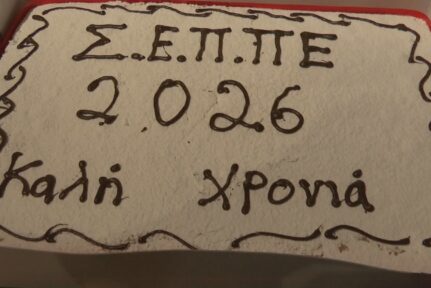 Σ.Ε.Π.ΠΕ
2026
Καλή χρονιά